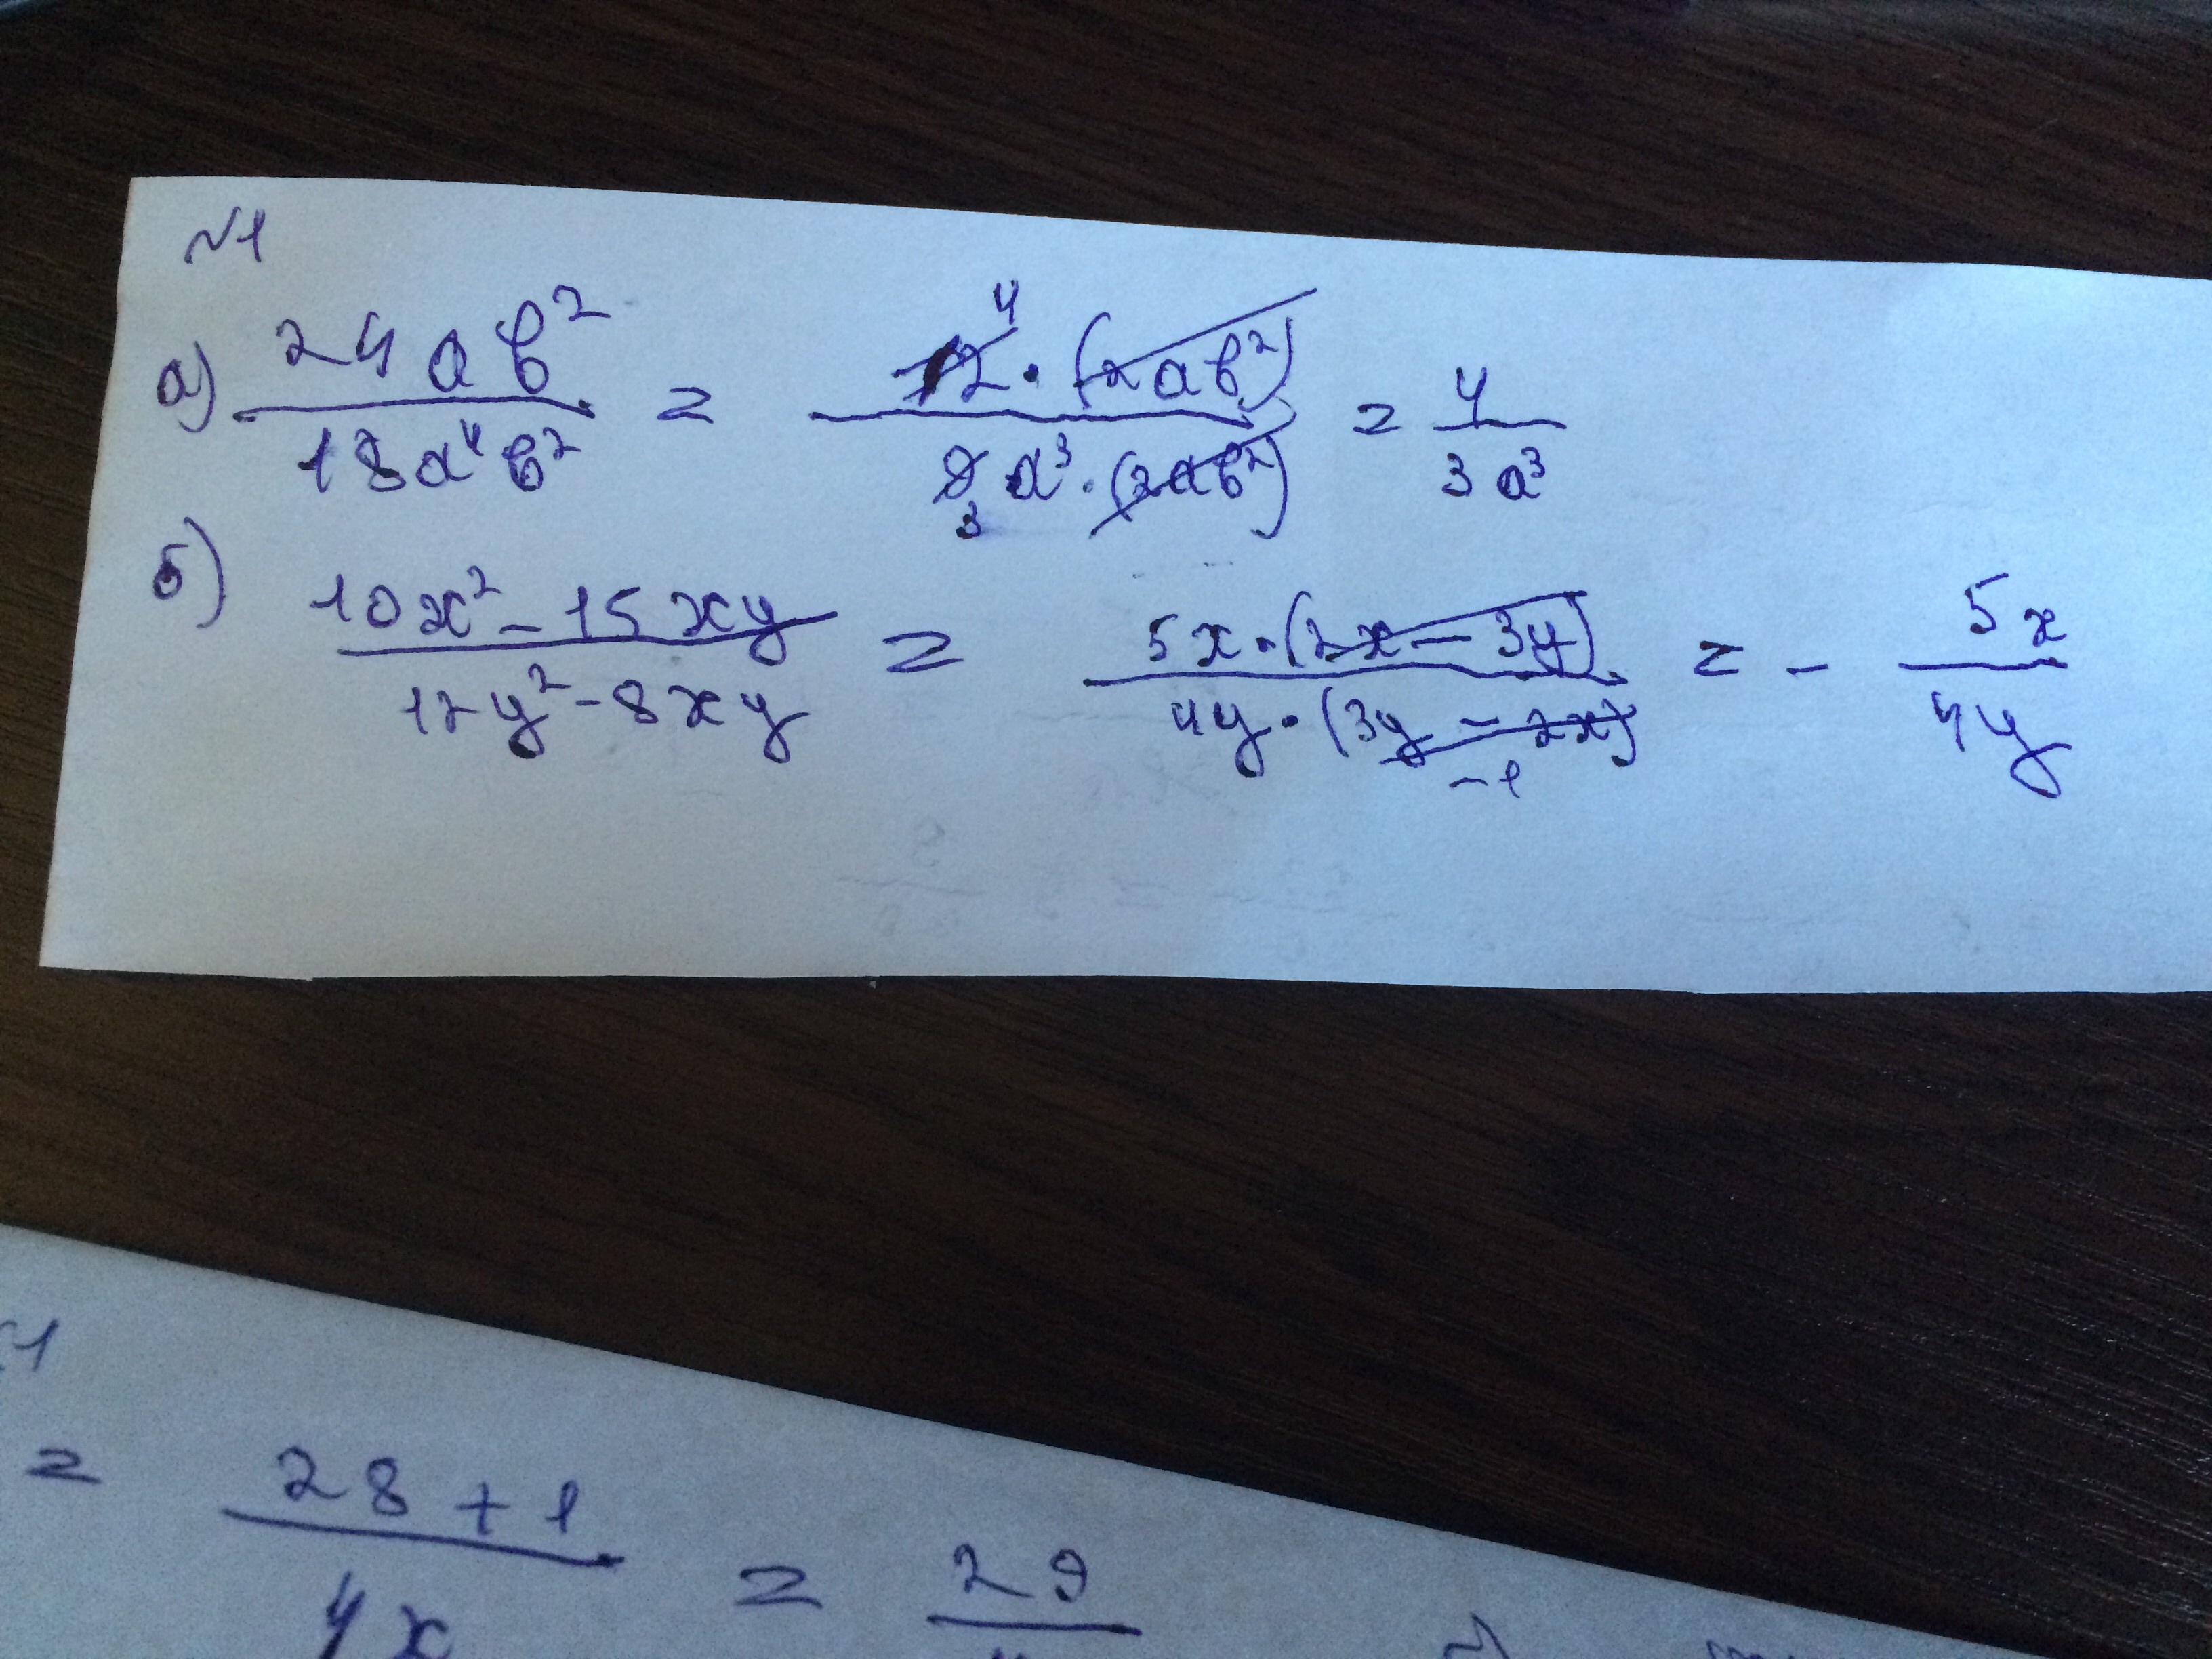 №1
а) 24ab²/18a⁴b² = 12⁴·(2ab²)/9₃a³·(2ab²) = 4/3a³
б) 10x² - 15xy/12y² - 8xy = 5x·(2x - 3y)/4y·(3y - 2x) -1 = - 5x/4y
= 28 + 1/4x = 29